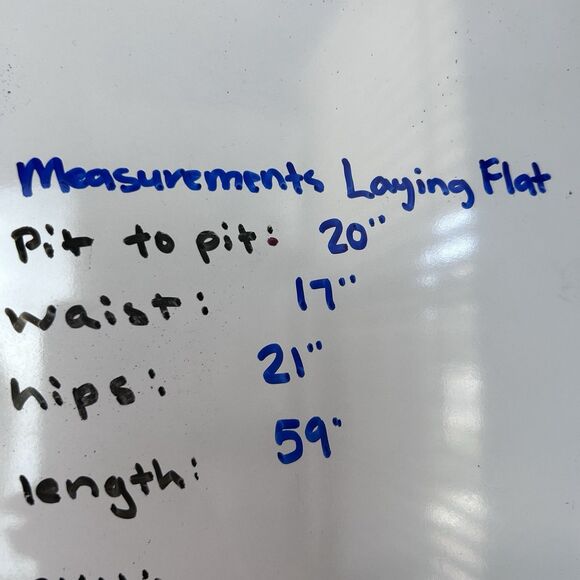 Measurements Laying Flat
Pit to pit: 20"
waist: 17"
hips: 21"
length: 59"